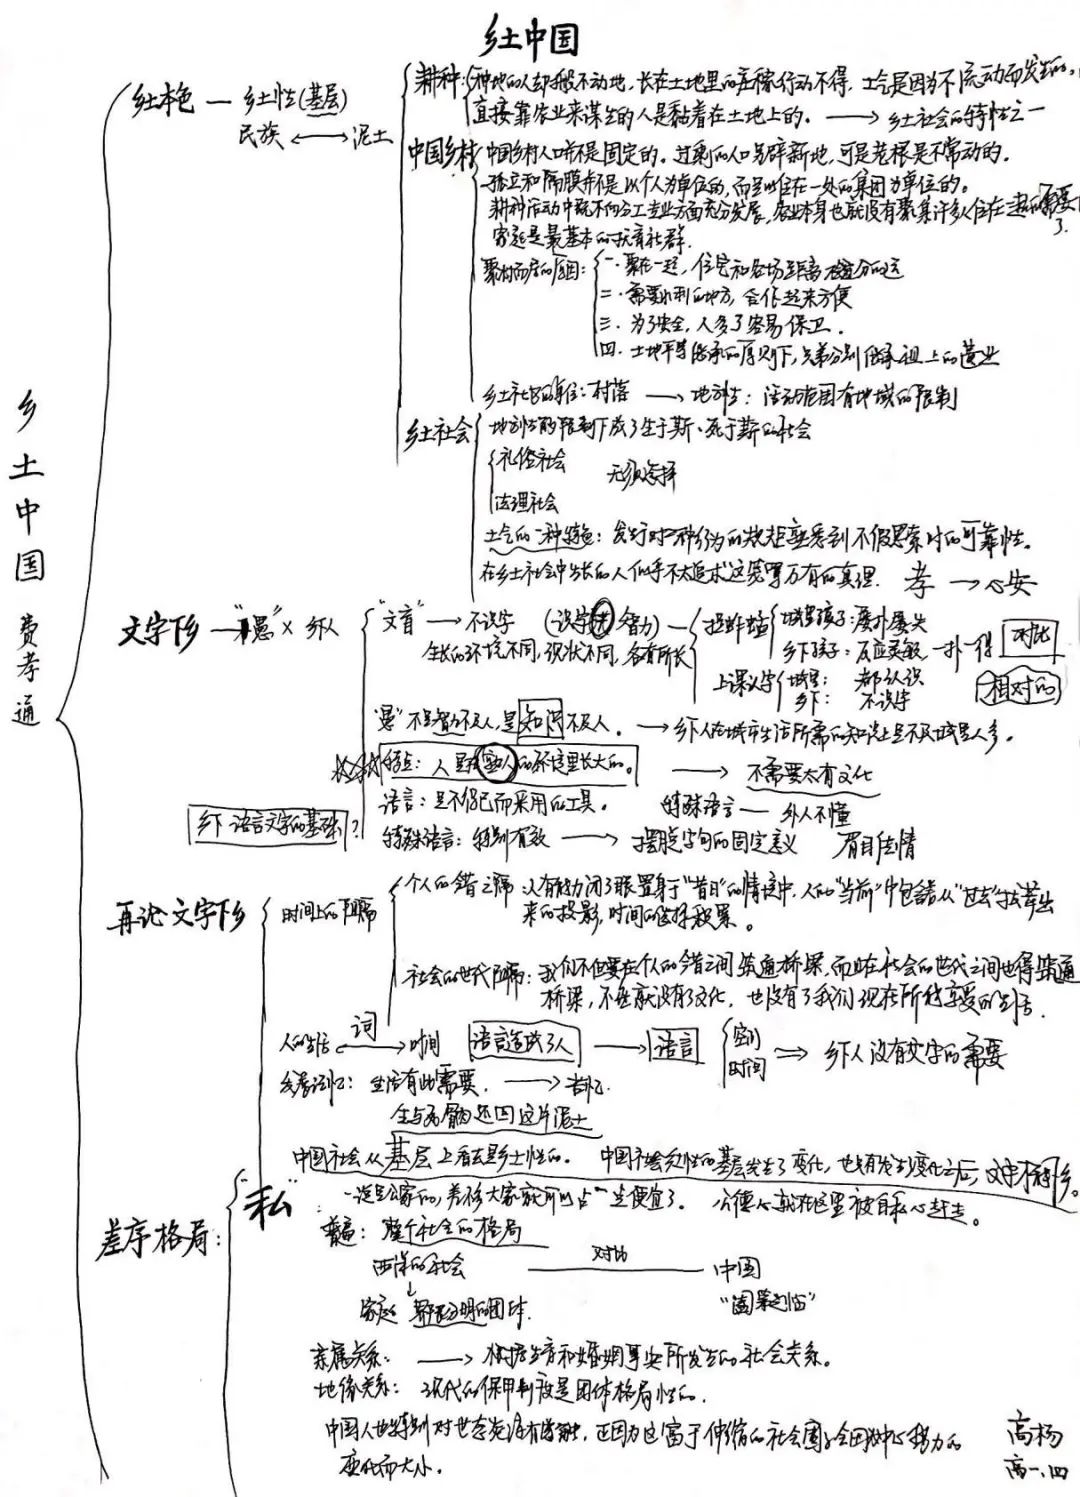 乡土中国
乡土中国 费孝通
乡土本色 — 乡土性(基层)
民族 ⟷ 泥土
耕种: 种地的人却搬不动地,长在土地里的庄稼行动不得,土气是因为不流动而发生的。
直接靠农业来谋生的人是黏着在土地上的。 → 乡土社会的特性之一
中国乡村 中国乡村人口并不是固定的。过剩的人口另辟新地,可是老根是不常动的。
孤立和隔膜并不是以个人为单位的,而是以住在一处的集团为单位的。
耕种活动中既不向分工专业方面充分发展,农业本身也就没有聚集许多人住在一起的需要了。
家庭是最基本的抚育社群。
聚村而居的原因: 一. 聚在一起,住宅和农场距离不会过分的远
二. 需要水利的地方,合作起来方便
三. 为了安全,人多了容易保卫.
四. 土地平等继承的原则下,兄弟分别继承祖上的遗业
乡土社区的单位:村落 → 地方性:活动范围有地域的限制
乡土社会 地方性的限制下成了生于斯、死于斯的社会
礼俗社会 无须选择
法理社会
土气的一种特色:发于对一种行为的规矩熟悉到不假思索时的可靠性。
在乡土社会中生长的人似乎不太追求这笼罩万有的真理. 孝 → 心安
文字下乡 — "愚" × 乡下人
"文盲" → 不识字 (识字 智力) — 捉蚱蜢 城里孩子:屡扑屡失
生长的环境不同,现状不同,各有所长 乡下孩子:反应灵敏 一扑一得 对比
上课识字 城里: 都认识 相对的
乡下: 不识字
"愚"不是智力不及人,是知识不及人。 → 乡下人在城市生活所需的知识上是不及城里人多。
特点:人是在熟人的环境里长大的。 → 不需要太有文化
语言:是不得已而采用的工具。 特殊语言 — 外人不懂
乡下语言文字的基础?
特殊语言:特别有效 → 摆脱字句的固定意义 眉目传情
再论文字下乡
时间上的阻隔 个人的今昔之隔:人有能力闭了眼置身于"昔日"的情境中,人的"当前"中包含着从"过去"拔萃出
来的投影,时间的选择积累。
社会的世代阻隔:我们不但要在个人的今昔之间筑通桥梁,而且在社会的世代之间也得筑通
桥梁,不然就没有了文化,也没有了我们现在所能享受的生活.
人的生活 词 时间 语言造成了人 → 语言 空间 时间 ⇒ 乡下人没有文字的需要
生活有此需要. →
中国社会从基层上看去是乡土性的。 中国社会乡土性的基层发生了变化,也只有发生变化之后,文字才能下乡。
差序格局:
"私" 一说是公家的,差不多大家就可以占一点便宜了. 公德心就在这里被自私心赶走。
整个社会的格局
西洋的社会 — 对比 — 中国
家庭 界限分明的团体. "圈渠之临"
亲属关系: → 根据生育和婚姻事实所发生的社会关系。
地缘关系: 现代的保甲制度是团体格局性的.
中国人也特别对世态炎凉有感触,正因为这富于伸缩的社会圈子会因中心势力的
变化而大小.
高杨
高一.四